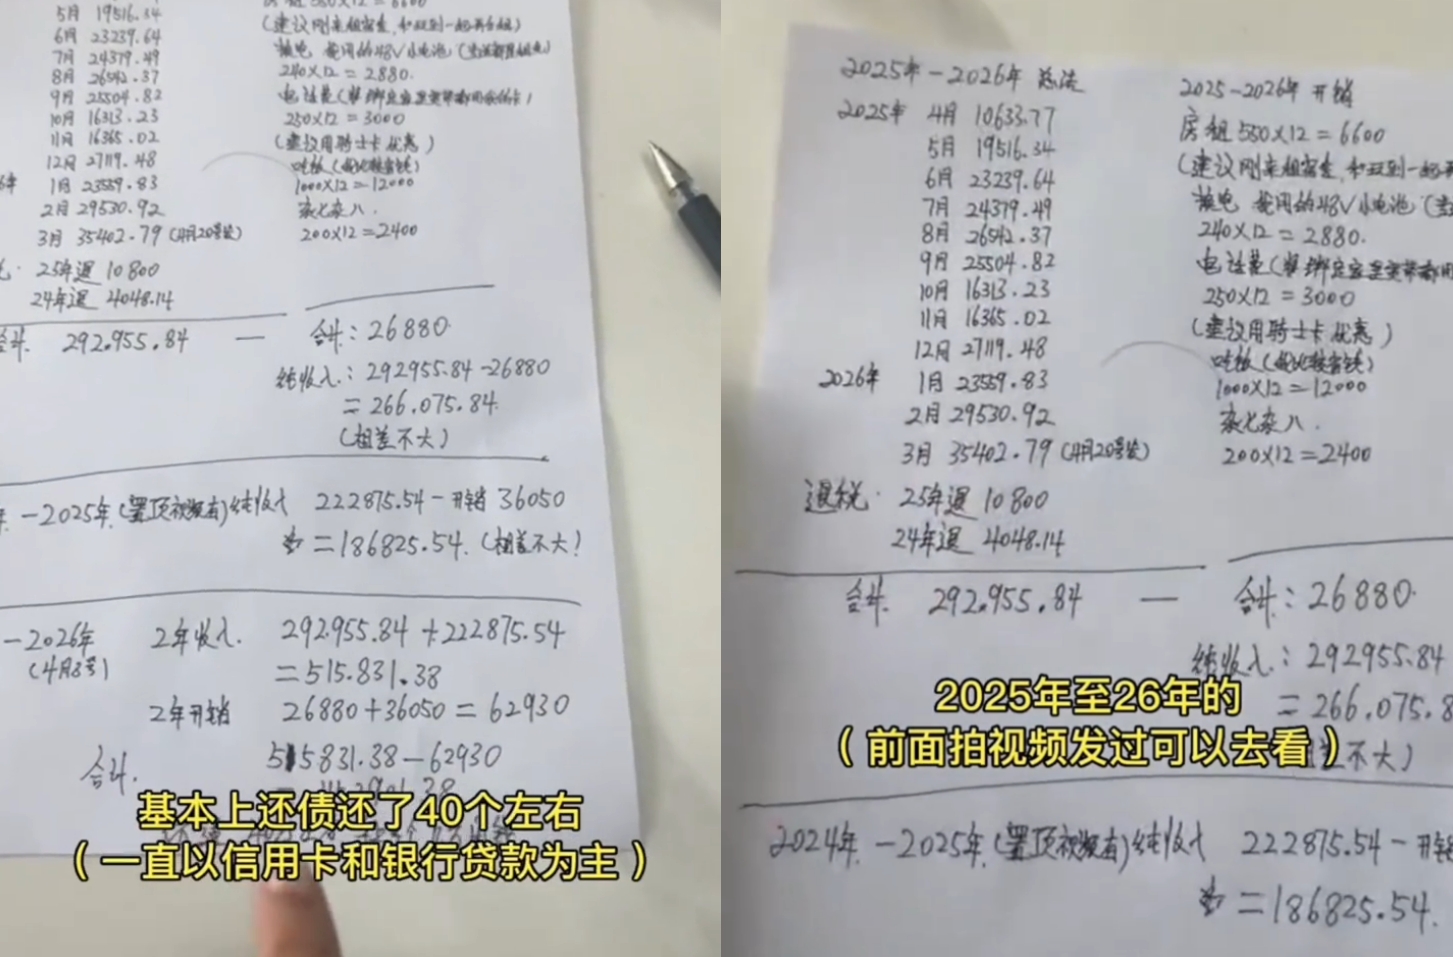 5月 19516.34
6月 23239.64
7月 24379.49
8月 26542.37
9月 25504.82
10月 16313.23
11月 16365.02
12月 27119.48
1月 23559.83
2月 29530.92
3月 35402.79 (4月20号发)
25年退 10800
24年退 4048.14
合计. 292.955.84 —
房租 550×12 = 6600
(建议刚来租宿舍,和双到一起再合租)
换电 使用的48V小电池
240×12 = 2880.
电话费
250×12 = 3000
(建议用骑士卡优惠)
吃饭
1000×12 = 12000
杂七杂八.
200×12 = 2400
合计: 26880
纯收入: 292955.84 - 26880
= 266.075.84
(相差不大)
-2025年(置顶视频有)纯收入 222875.54 - 开销 36050
= 186825.54. (相差不大!
-2026年
(4月3号)
2年收入. 292.955.84 + 222875.54
= 515.831.38
2年开销 26880 + 36050 = 62930
合计. 515831.38 - 62930
基本上还债还了40个左右
(一直以信用卡和银行贷款为主)
2025年-2026年 总流
2025年 4月 10633.77
5月 19516.34
6月 23239.64
7月 24379.49
8月 26542.37
9月 25504.82
10月 16313.23
11月 16365.02
12月 27119.48
2026年 1月 23559.83
2月 29530.92
3月 35402.79 (4月20号发)
退税. 25年退 10800
24年退 4048.14
合计. 292.955.84 —
2025-2026年 开销
房租 550×12 = 6600
(建议刚来租宿舍,和双到一起再
换电 使用的48V小电池
240×12 = 2880.
电话费
250×12 = 3000
(建议用骑士卡优惠)
吃饭
1000×12 = 12000
杂七杂八.
200×12 = 2400
合计: 26880.
纯收入: 292955.84
= 266.075.8
差不大)
2025年至26年的
(前面拍视频发过可以去看)
2024年. -2025年.(置顶视频有)纯收入 222875.54 - 开销
= 186825.54.